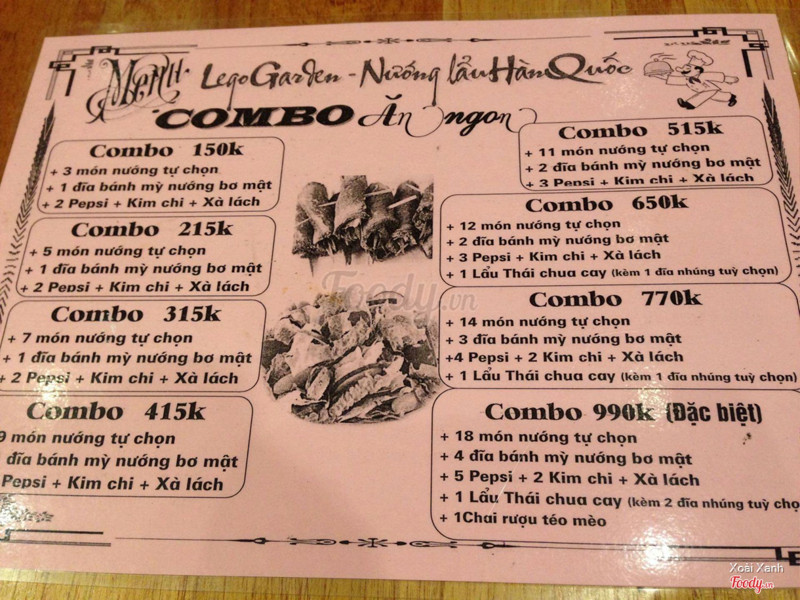 Menu
Lego Garden - Nướng lẩu Hàn Quốc
COMBO Ăn ngon
Combo 150k
+ 3 món nướng tự chọn
+ 1 đĩa bánh mỳ nướng bơ mật
+ 2 Pepsi + Kim chi + Xà lách
Combo 215k
+ 5 món nướng tự chọn
+ 1 đĩa bánh mỳ nướng bơ mật
+ 2 Pepsi + Kim chi + Xà lách
Combo 315k
+ 7 món nướng tự chọn
+ 1 đĩa bánh mỳ nướng bơ mật
+ 2 Pepsi + Kim chi + Xà lách
Combo 415k
9 món nướng tự chọn
đĩa bánh mỳ nướng bơ mật
Pepsi + Kim chi + Xà lách
Combo 515k
+ 11 món nướng tự chọn
+ 2 đĩa bánh mỳ nướng bơ mật
+ 3 Pepsi + Kim chi + Xà lách
Combo 650k
+ 12 món nướng tự chọn
+ 2 đĩa bánh mỳ nướng bơ mật
+ 3 Pepsi + Kim chi + Xà lách
+ 1 Lẩu Thái chua cay (kèm 1 đĩa nhúng tuỳ chọn)
Combo 770k
+ 14 món nướng tự chọn
+ 3 đĩa bánh mỳ nướng bơ mật
+4 Pepsi + 2 Kim chi + Xà lách
+ 1 Lẩu Thái chua cay (kèm 1 đĩa nhúng tuỳ chọn)
Combo 990k (Đặc biệt)
+ 18 món nướng tự chọn
+ 4 đĩa bánh mỳ nướng bơ mật
+ 5 Pepsi + 2 Kim chi + Xà lách
+ 1 Lẩu Thái chua cay (kèm 2 đĩa nhúng tuỳ chọ
+ 1Chai rượu téo mèo
Foody.vn
Xoài Xanh
Foody.vn